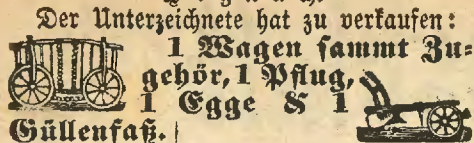 Der Unterzeichnete hat zu verkaufen:
1 Wagen sammt Zu-
gehör, 1 Pflug,
1 Egge & 1
Güllenfaß.